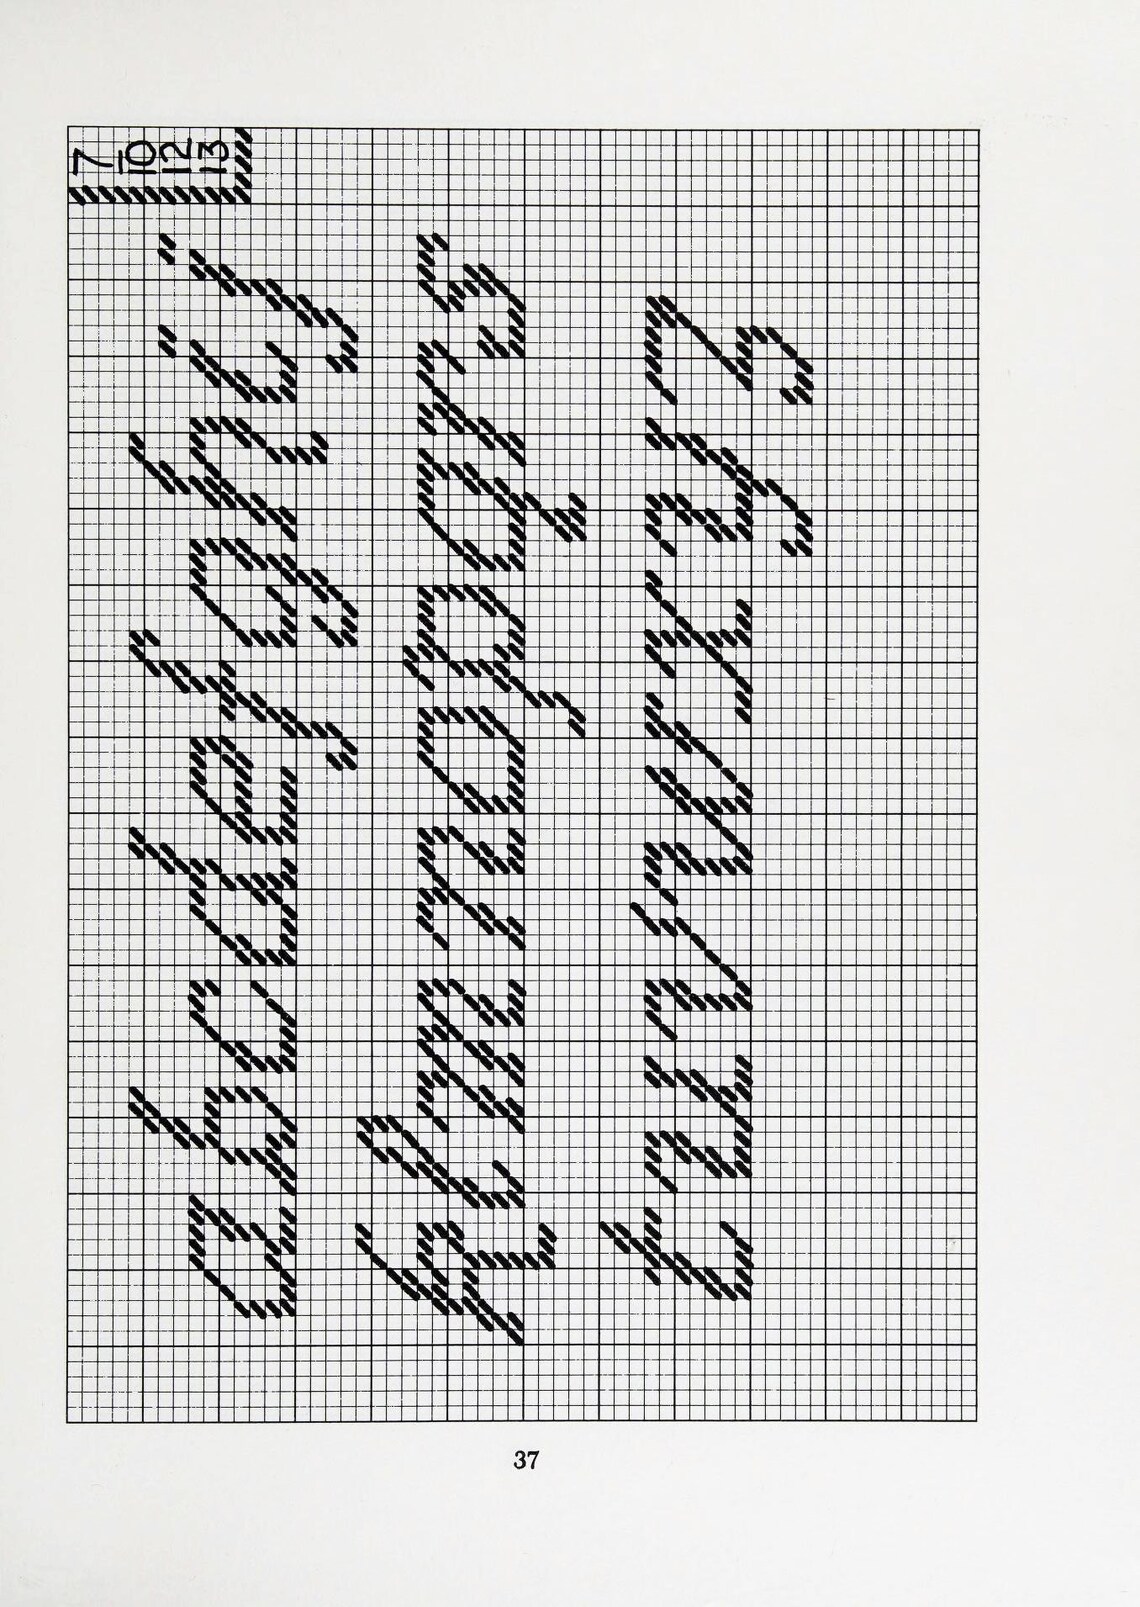 7
10
12
13
a b c d e f g h i j
k l m n o p q r s
t u v w x y z
37